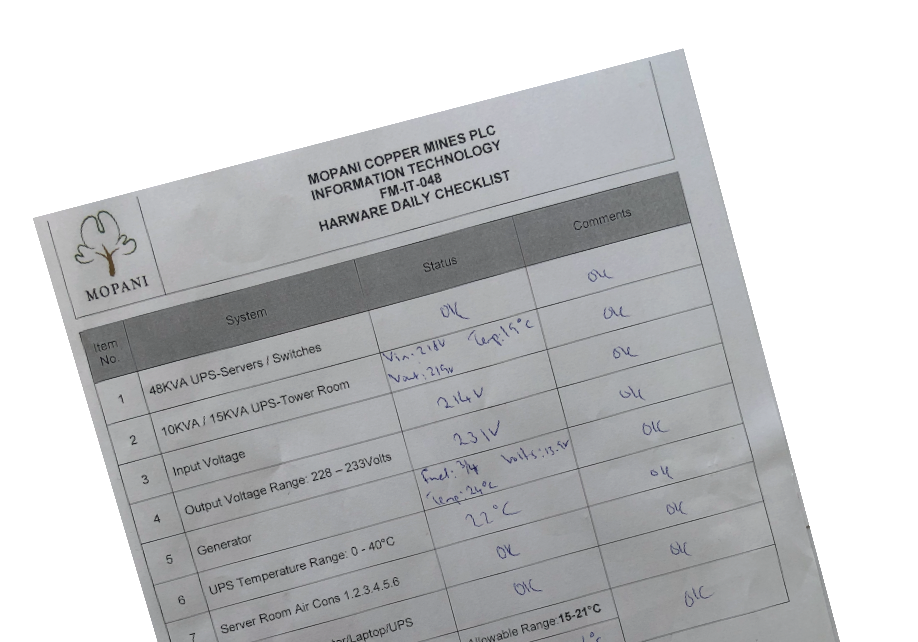 MOPANI COPPER MINES PLC
INFORMATION TECHNOLOGY
FM-IT-048
HARWARE DAILY CHECKLIST
MOPANI
Item No. System Status Comments
1 48KVA UPS-Servers / Switches OK OK
2 10KVA / 15KVA UPS-Tower Room Vin: 218V Temp: 19°C OK
Vout: 219v
3 Input Voltage 214V OK
4 Output Voltage Range: 228 – 233Volts 231V OK
5 Generator Fuel: 3/4 Volts: 13.5V OK
Temp: 24°C
6 UPS Temperature Range: 0 - 40°C 22°C OK
7 Server Room Air Cons 1.2.3.4.5.6 OK OK
/Laptop/UPS OK OK
Allowable Range: 15-21°C OK
°C